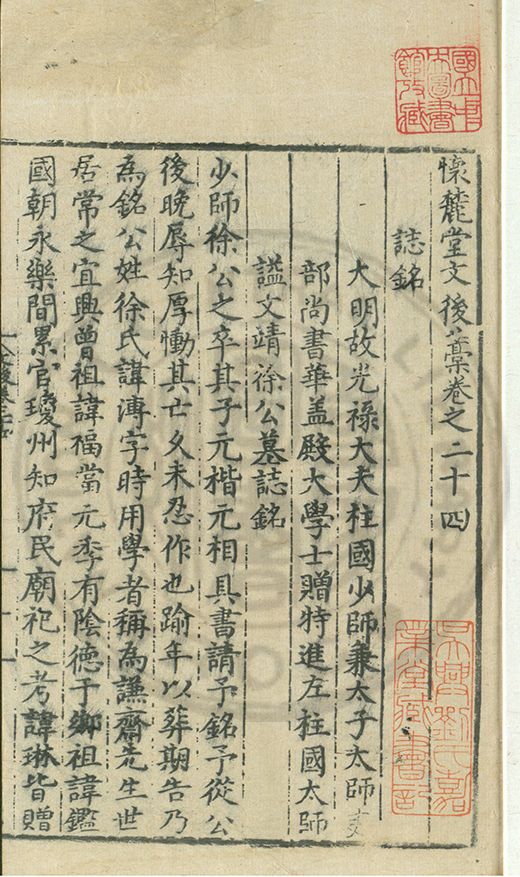 懷麓堂文後藁卷之二十四
誌銘
大明故光祿大夫柱國少師兼太子太師吏
部尚書華盖殿大學士贈特進左柱國太師
謚文靖徐公墓誌銘
少師徐公之卒其子元楷元相具書請予銘予從公
後晚辱知厚慟其亡久未忍作也踰年以葬期告乃
為銘公姓徐氏諱溥字時用學者稱為謙齋先生世
居常之宜興曾祖諱福當元季有陰德于鄉祖諱鑑
國朝永樂間累官瓊州知府民廟祀之考諱琳皆贈
國立中央圖書館收藏
吳興劉氏嘉業堂藏書記